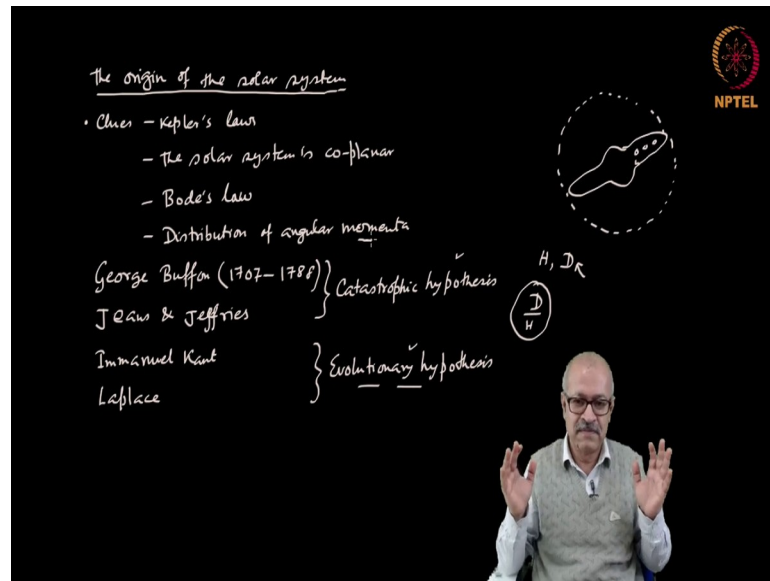 NPTEL
the origin of the solar system
• Clues – Kepler's laws
– the solar system is co-planar
– Bode's law
– Distribution of angular momenta
George Buffon (1707–1788) } Catastrophic hypothesis
Jeans & Jeffries
Immanuel Kant } Evolutionary hypothesis
Laplace
H, D
D
H